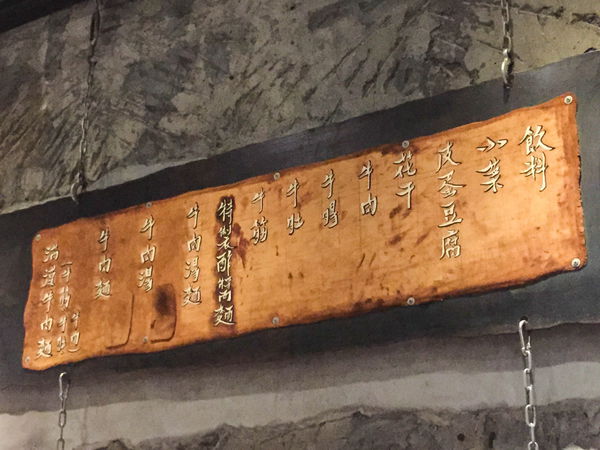 飲料
小菜
皮蛋豆腐
花干
牛肉
牛腸
牛肚
牛筋
特製炸醬麵
牛肉湯麵
牛肉湯
牛肉麵
牛肉麵
(牛筋牛肚牛肉)